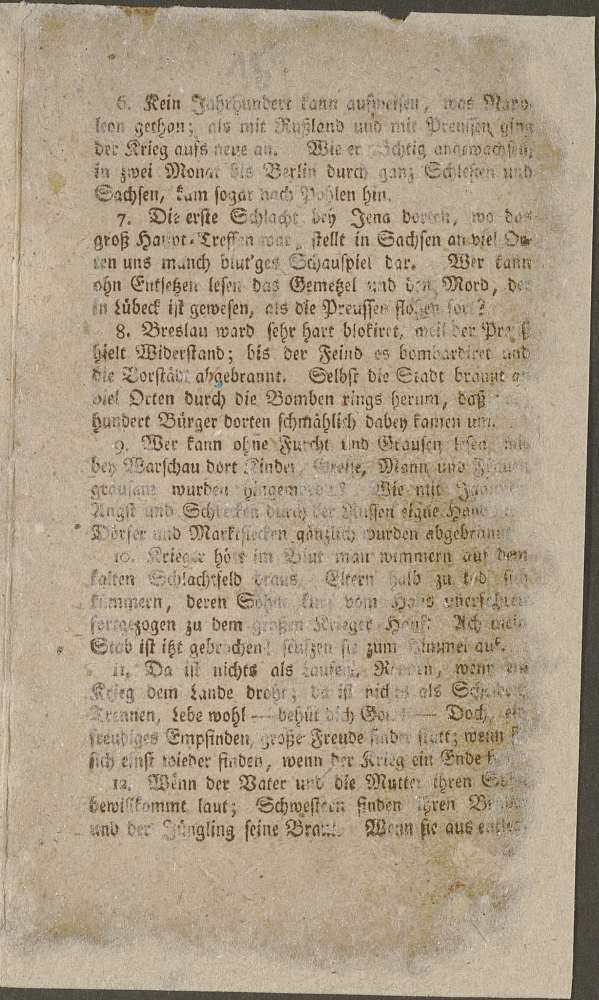 6. Kein Jahrhundert kann aufweisen, was Napo-
leon gethon; als mit Rußland und mit Preussen ging
der Krieg aufs neue an. Wie er mächtig angewachsen,
in zwei Monat bis Berlin durch ganz Schlesien und
Sachsen, kam sogar nach Pohlen hin.
7. Die erste Schlacht bey Jena dorten, wo das
groß Haupt-Treffen war, stellt in Sachsen an viel Or-
ten uns manch blut'ges Schauspiel dar. Wer kann
ohn Entsetzen lesen das Gemetzel und den Mord, der
in Lübeck ist gewesen, als die Preussen flohen fort?
8. Breslau ward sehr hart blokiret, weil der Preuß
hielt Widerstand; bis der Feind es bombardiret und
die Vorstädt abgebrannt. Selbst die Stadt brannt an
viel Orten durch die Bomben rings herum, daß
hundert Bürger dorten schmählich dabey kamen um.
9. Wer kann ohne Furcht und Grausen lesen, wie
bey Warschau dort Kinder, Greise, Mann und Frauen
grausam wurden Wie mit Jammer
Angst und Schrecken durch der Russen eigne Hand
Dörfer und Marktflecken gänzlich wurden abgebrannt
10. Krieger hört im Blut man wimmern auf dem
kalten Schlachtfeld draus. Eltern halb zu tod sich
kümmern, deren Sohn vom Haus
fortgezogen zu dem großen Krieger Hauf: Ach mein
Stab ist itzt gebrochen! seufzen sie zum Himmel auf.
11. Da ist nichts als Laufen, Rennen, wenn ein
Krieg dem Lande droht; da ist nichts als Scheiden,
Trennen, Lebe wohl — behüt dich Gott — Doch, ein
freudiges Empfinden, große Freude findet statt; wenn
sich einst wieder finden, wenn der Krieg ein Ende
12. Wenn der Vater und die Mutter ihren Sohn
bewillkommt laut; Schwestern finden ihren Bruder
und der Jüngling seine Braut. Wenn sie aus